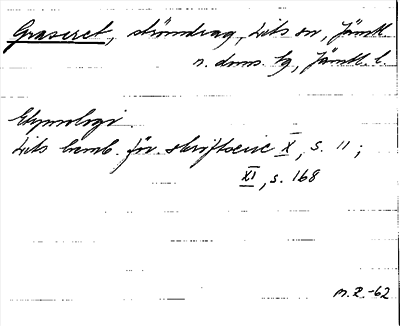 Graseret, strömdrag, Lits sn, Jämtl.
n. doms. tg, Jämtl. l.
Etymologi
Lits hemb. för. skriftserie X, s. 11;
XI, s. 168
M.E.-62